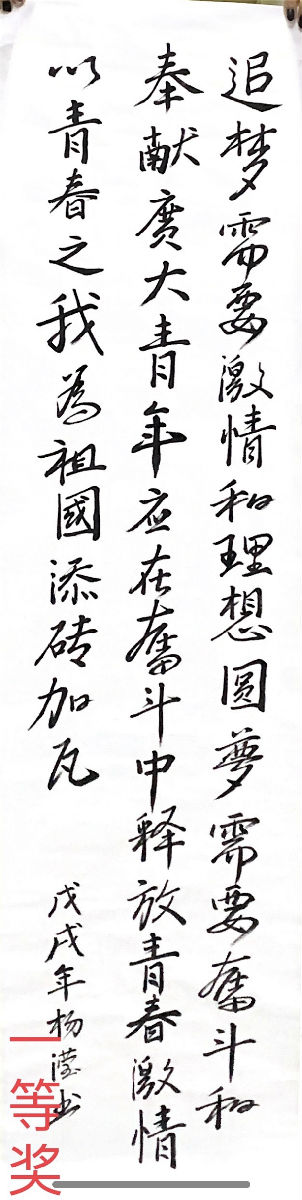 追梦需要激情和理想圆夢需要奮斗和
奉献廣大青年应在奮斗中释放青春激情
以青春之我為祖國添砖加瓦
戊戌年杨滢书
一等奖